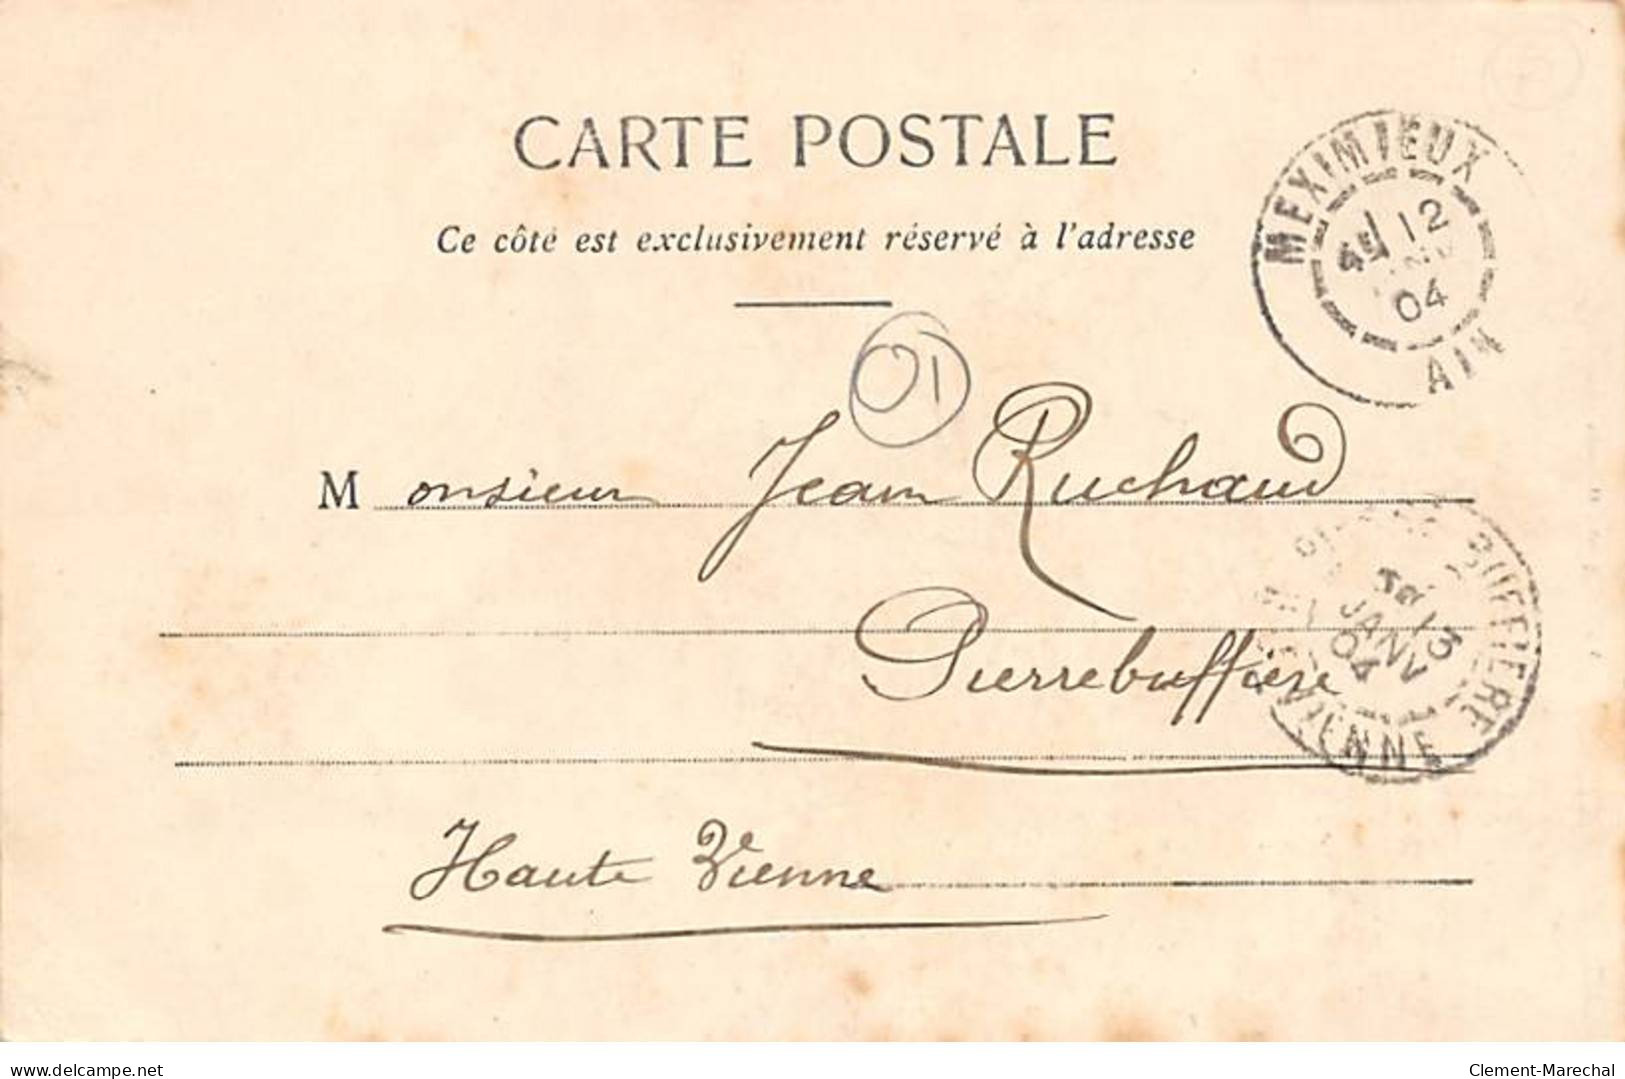 CARTE POSTALE
Ce côté est exclusivement réservé à l'adresse
MEXIMIEUX
12
04
AIN
01
Monsieur Jean Ruchaud
Pierrebuffiere
BUFFIERE
13
JANV
04
VIENNE
Haute Vienne
delcampe.net
Clement-Marechal